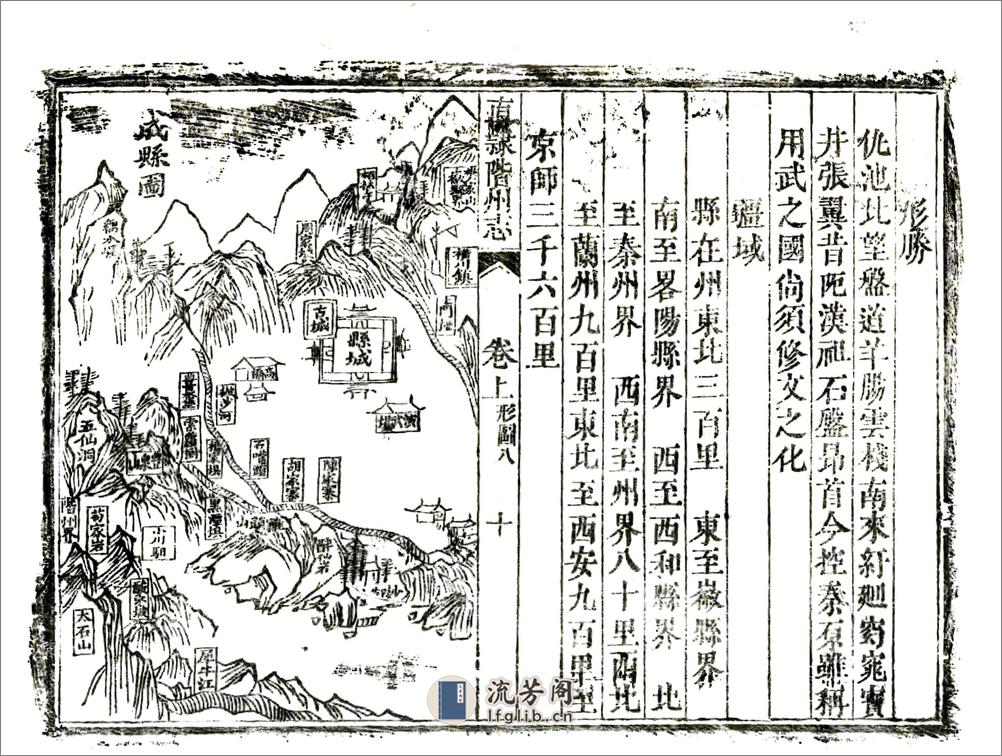 形勝
仇池北望盤道羊腸雲棧南來紆廻窈窕寶
井張翼昔阨漢祖石盤昂首今控秦原雖稱
用武之國尙須修文之化
疆域
縣在州東北三百里　東至徽縣界
南至畧陽縣界　西至西和縣界　北
至秦州界　西南至州界八十里西北
至蘭州九百里東北至西安九百里至
京師三千六百里
直隸階州志
卷上形圖八
十
成縣圖
橫鎮
古城
縣城
五仙洞
階州界
小川
太石山
犀牛江
石嘴頭
胡家寨
陳家寨
黑潭壩
流芳阁
lfglib.cn